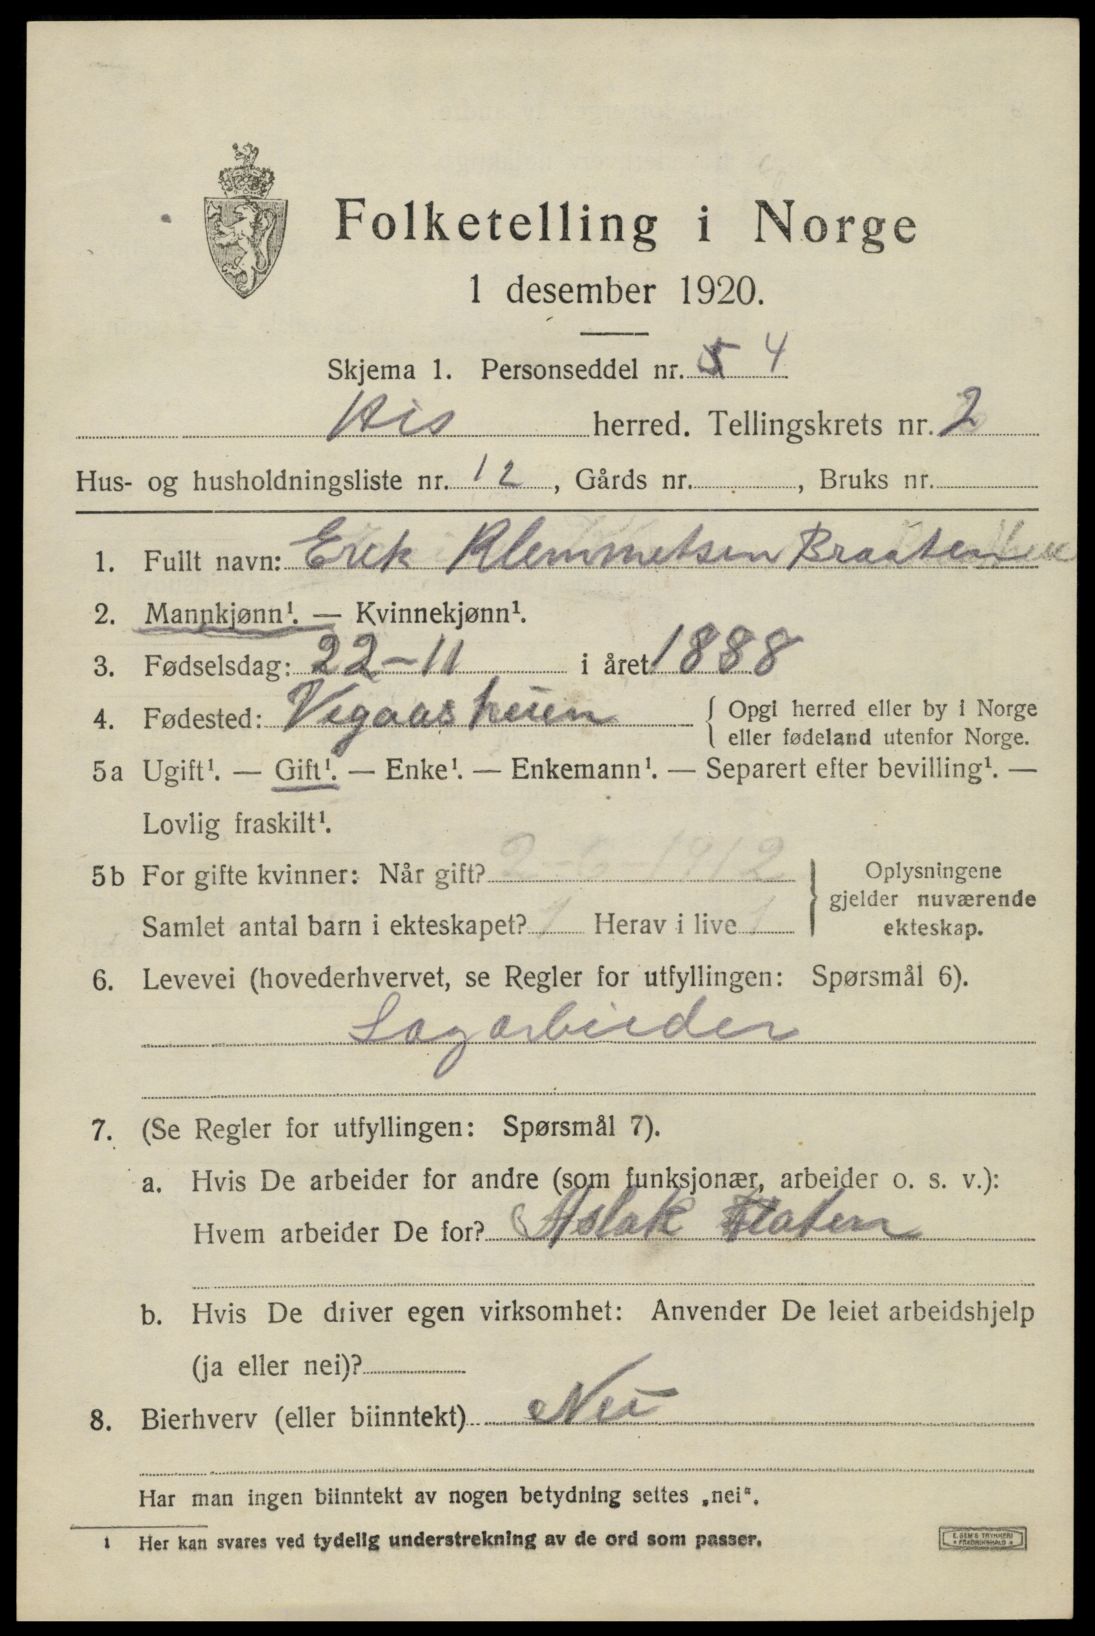 Folketelling i Norge
1 desember 1920.
Skjema 1. Personseddel nr. 4
His herred. Tellingskrets nr. 2
Hus- og husholdningsliste nr. 12, Gårds nr. , Bruks nr.
1. Fullt navn: Erik Klemmetsen Braaten
2. Mannkjønn¹. — Kvinnekjønn¹.
3. Fødselsdag: 22-11 i året 1888
4. Fødested: Vegaasheien { Opgi herred eller by i Norge
eller fødeland utenfor Norge.
5a Ugift¹. — Gift¹. — Enke¹. — Enkemann¹. — Separert efter bevilling¹. —
Lovlig fraskilt¹.
5b For gifte kvinner: Når gift? 2-6-1912 } Oplysningene
gjelder nuværende
Samlet antal barn i ekteskapet? 1 Herav i live 1 ekteskap.
6. Levevei (hovederhvervet, se Regler for utfyllingen: Spørsmål 6).
Sagarbieder
7. (Se Regler for utfyllingen: Spørsmål 7).
a. Hvis De arbeider for andre (som funksjonær, arbeider o. s. v.):
Hvem arbeider De for? Aslak
b. Hvis De driver egen virksomhet: Anvender De leiet arbeidshjelp
(ja eller nei)?
8. Bierhverv (eller biinntekt) Nei
Har man ingen biinntekt av nogen betydning settes „nei".
1 Her kan svares ved tydelig understrekning av de ord som passer.
E. SEM'S TRYKKERI
FREDRIKSHALD